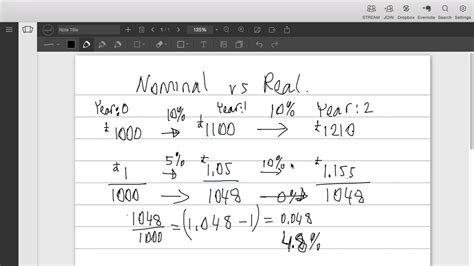 STREAM JOIN Dropbox Evernote Search
Note Title
1 / 1
135%
Nominal vs Real.
Year:0 10% Year:1 10% Year:2
£1000 → £1100 → £1210
£1 5% £1.05 10% £1.155
1000 → 1048 → 0% 1048
1048/1000 = (1.048 - 1) = 0.048
4.8%